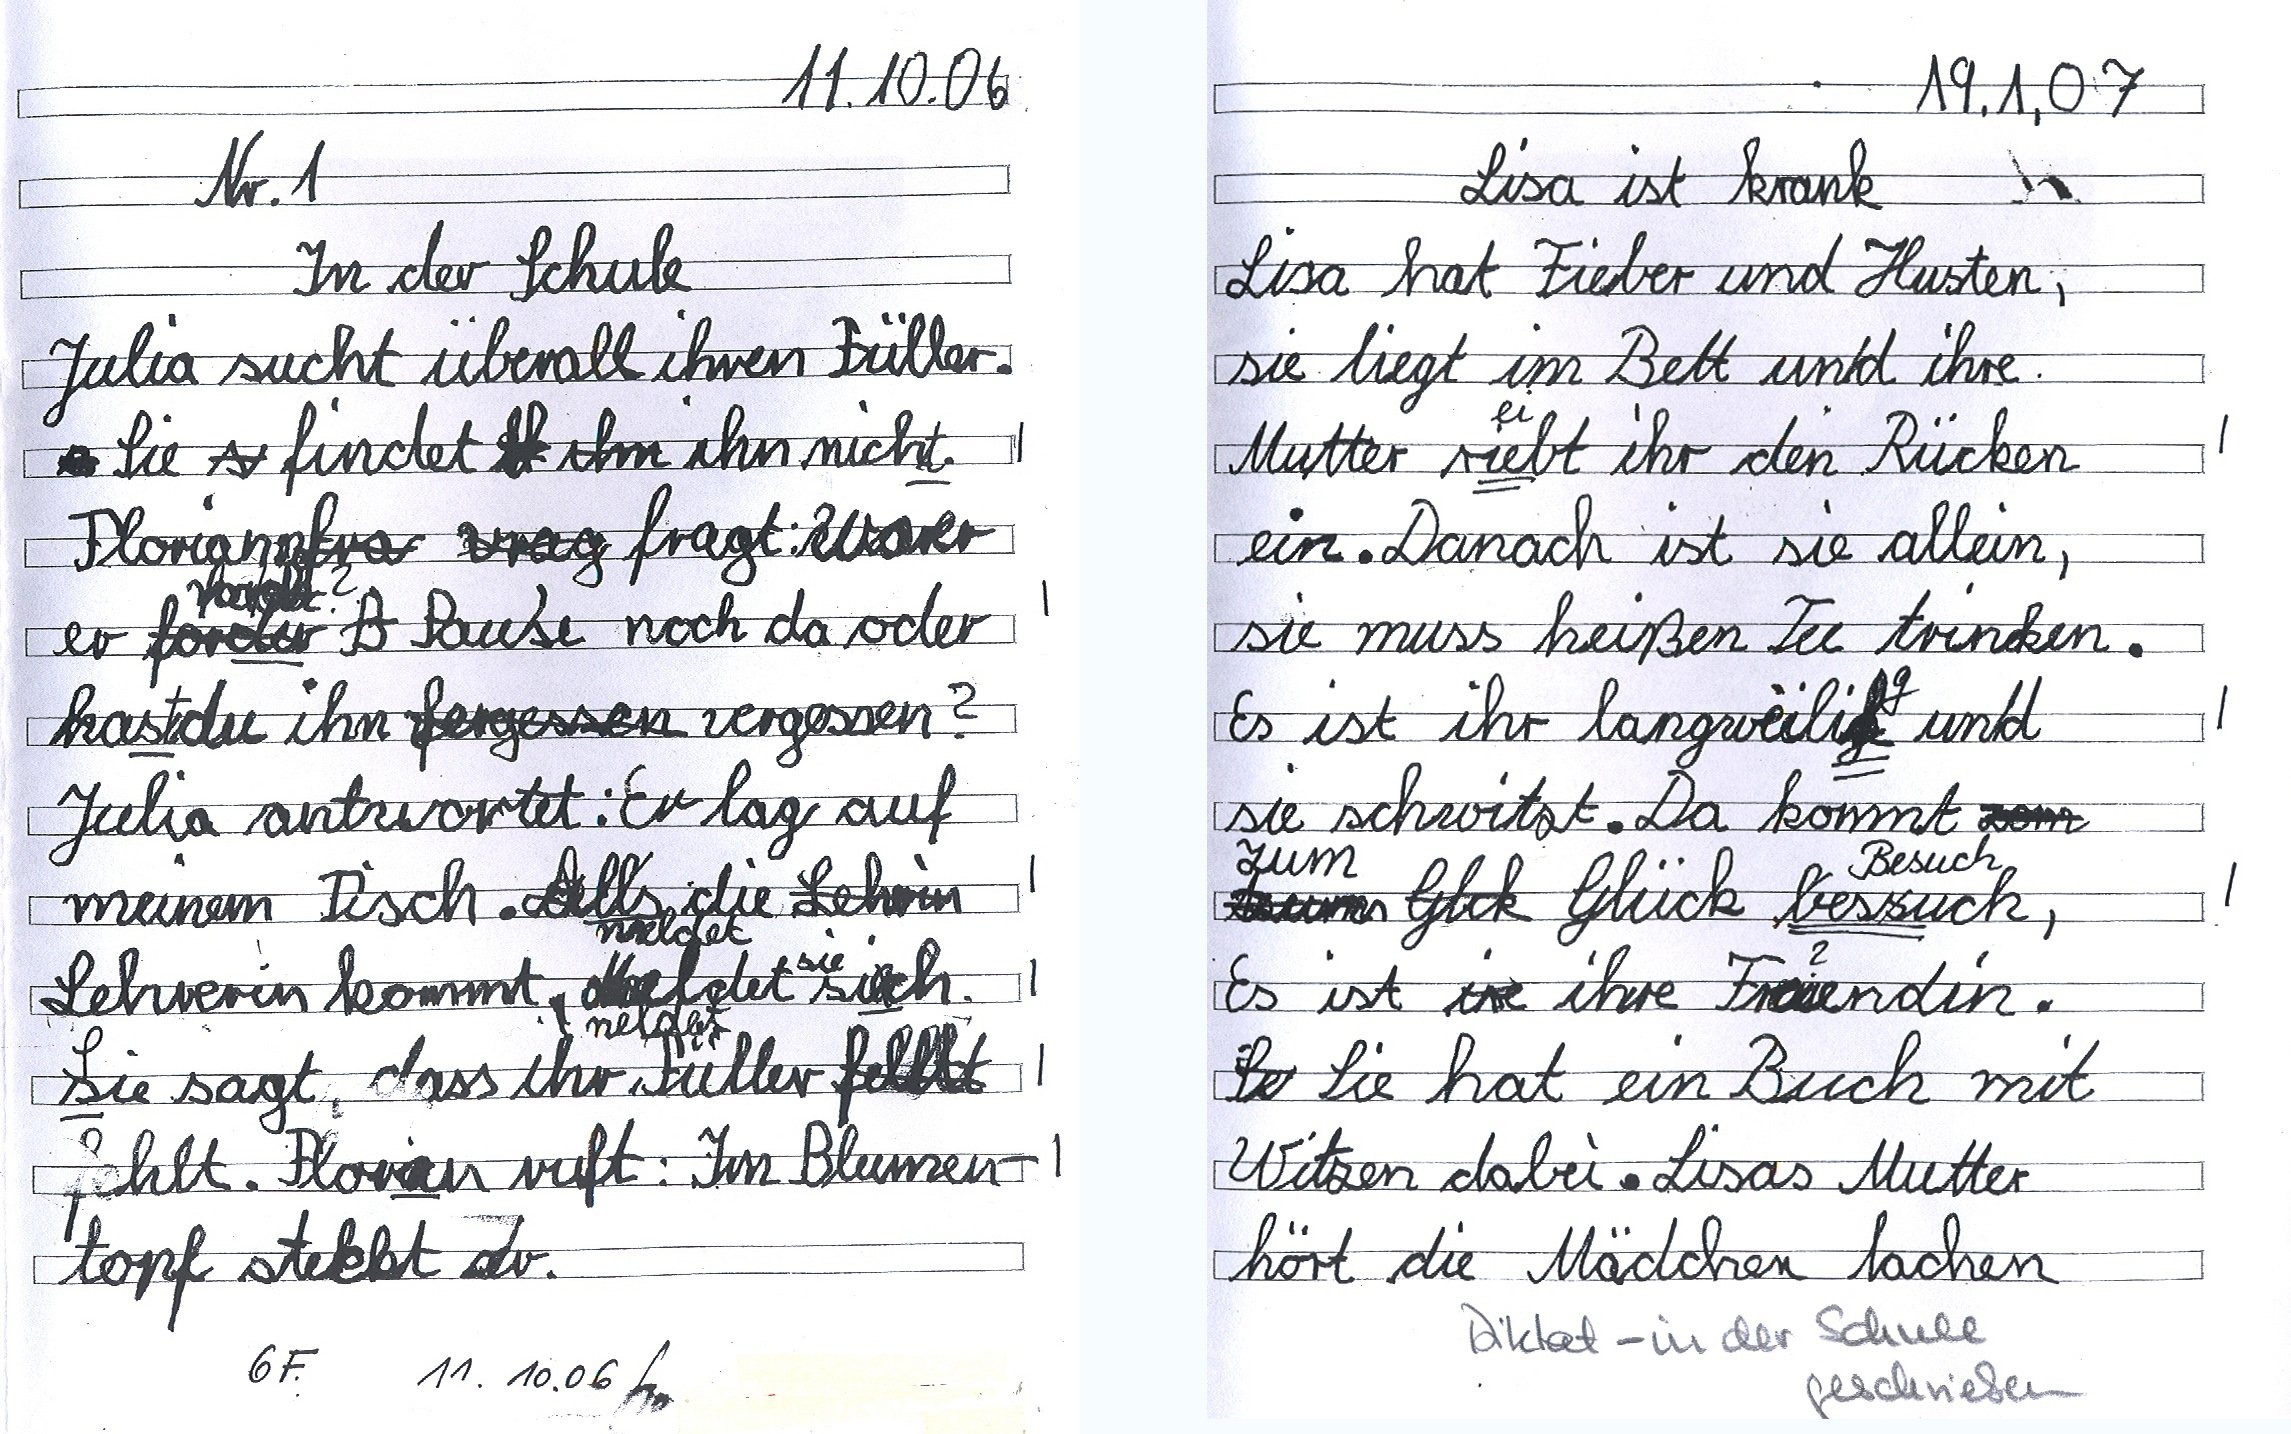 11.10.06
Nr. 1
In der Schule
Julia sucht überall ihren Füller.
Sie findet ihn nicht.
Florian fragt: War
er Pause noch da oder
hast du ihn vergessen?
Julia antwortet: Er lag auf
meinem Tisch. Als die Lehrin
Lehrerin kommt, meldet sie sich.
Sie sagt, dass ihr Füller fehlt
fehlt. Florian ruft: Im Blumen-
topf steckt er.
6 F. 11.10.06
19.1,07
Lisa ist krank
Lisa hat Fieber und Husten,
sie liegt im Bett und ihre
ei
Mutter riebt ihr den Rücken
ein. Danach ist sie allein,
sie muss heißen Tee trinken.
g
Es ist ihr langweilig und
sie schwitzt. Da kommt zom
zum Besuch
Glck Glück bessuch,
Es ist ire ihre Freundin.
Sie hat ein Buch mit
Witzen dabei. Lisas Mutter
hört die Mädchen lachen
Diktat - in der Schule
geschrieben